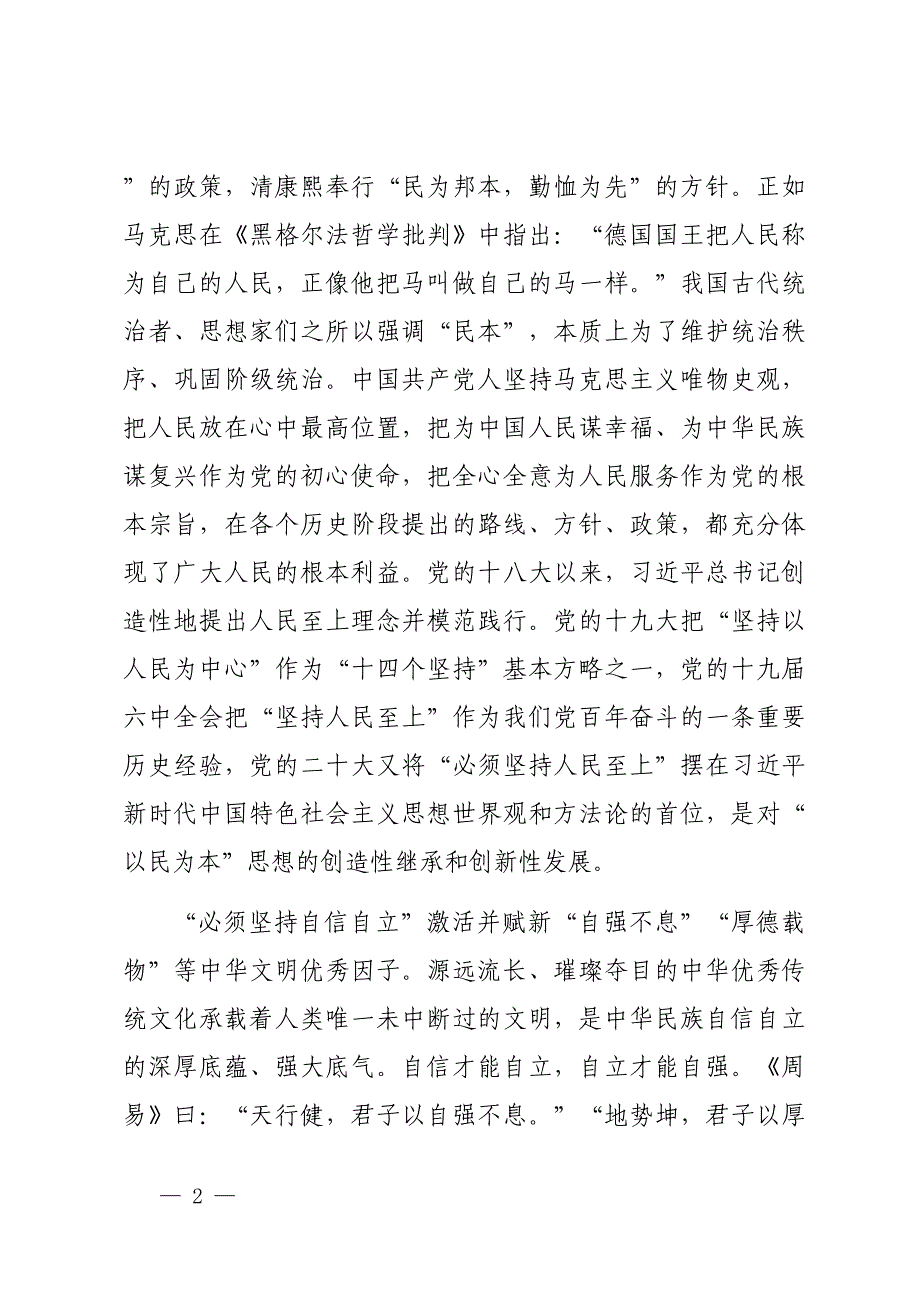 ”的政策，清康熙奉行“民为邦本，勤恤为先”的方针。正如
马克思在《黑格尔法哲学批判》中指出：“德国国王把人民称
为自己的人民，正像他把马叫做自己的马一样。”我国古代统
治者、思想家们之所以强调“民本”，本质上为了维护统治秩
序、巩固阶级统治。中国共产党人坚持马克思主义唯物史观，
把人民放在心中最高位置，把为中国人民谋幸福、为中华民族
谋复兴作为党的初心使命，把全心全意为人民服务作为党的根
本宗旨，在各个历史阶段提出的路线、方针、政策，都充分体
现了广大人民的根本利益。党的十八大以来，习近平总书记创
造性地提出人民至上理念并模范践行。党的十九大把“坚持以
人民为中心”作为“十四个坚持”基本方略之一，党的十九届
六中全会把“坚持人民至上”作为我们党百年奋斗的一条重要
历史经验，党的二十大又将“必须坚持人民至上”摆在习近平
新时代中国特色社会主义思想世界观和方法论的首位，是对“
以民为本”思想的创造性继承和创新性发展。
“必须坚持自信自立”激活并赋新“自强不息”“厚德载
物”等中华文明优秀因子。源远流长、璀璨夺目的中华优秀传
统文化承载着人类唯一未中断过的文明，是中华民族自信自立
的深厚底蕴、强大底气。自信才能自立，自立才能自强。《周
易》曰：“天行健，君子以自强不息。”“地势坤，君子以厚
— 2 —